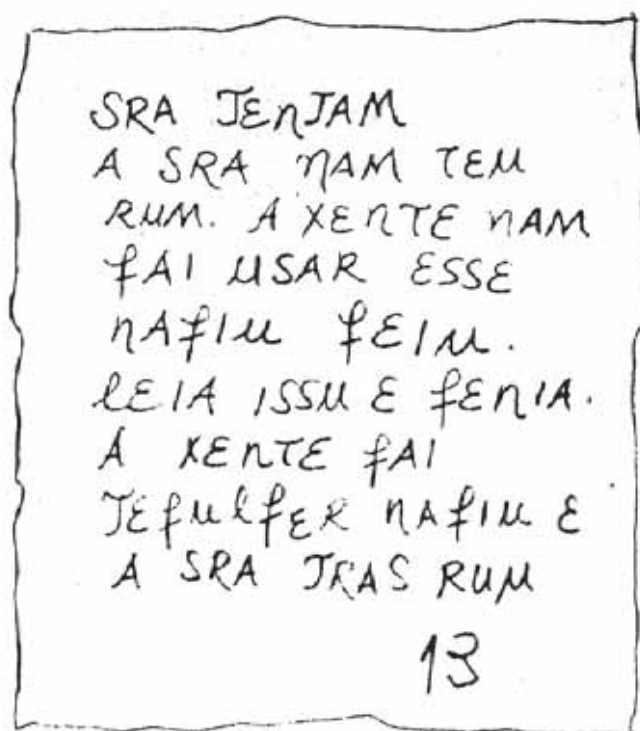 SRA TENTAM
A SRA NAM TEM
RUM. A XENTE NAM
FAI USAR ESSE
NAFIU FEIU.
LEIA ISSU E FENIA.
A XENTE FAI
TEFULFER NAFIU E
A SRA TRAS RUM
13